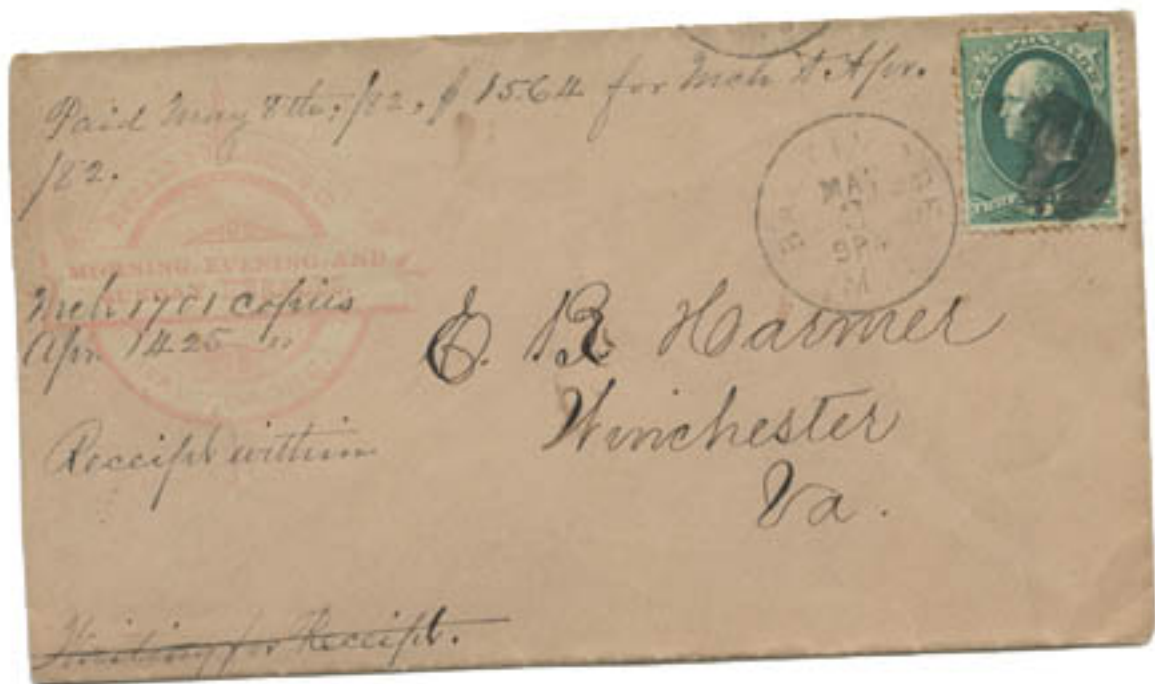 Paid May 8th, /82, $1564 for Mch & Apr.
/82.
MORNING, EVENING, AND
SUNDAY
Mch 1701 copies
Apr 1425 "
Receipt within
E. R. Harmer
Winchester
Va.
Waiting for Receipt.
MAY
9PM
M